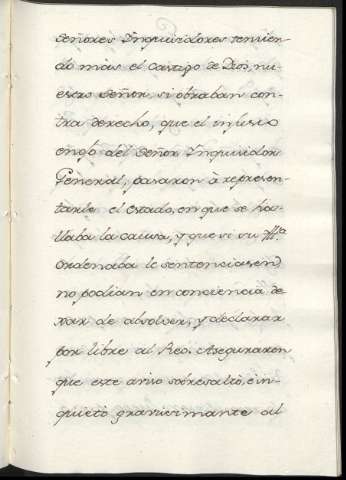 Señores Inquisidores temien-
do màs el Castigo de Dios, nu-
estro Señor si obraban con-
tra derecho, que el injusto
enojo del Señor Inquisidor
General, pasaron à represen-
tarle el estado, en que se ha-
llaba la causa, y que si su Yll.ª
Ordenaba le sentenciasen,
no podian en conciencia de
xar de absolver, y declarar
por libre al Reo. Aseguraron
que este aviso sobresaltò, è in-
quietò gravisimamente al